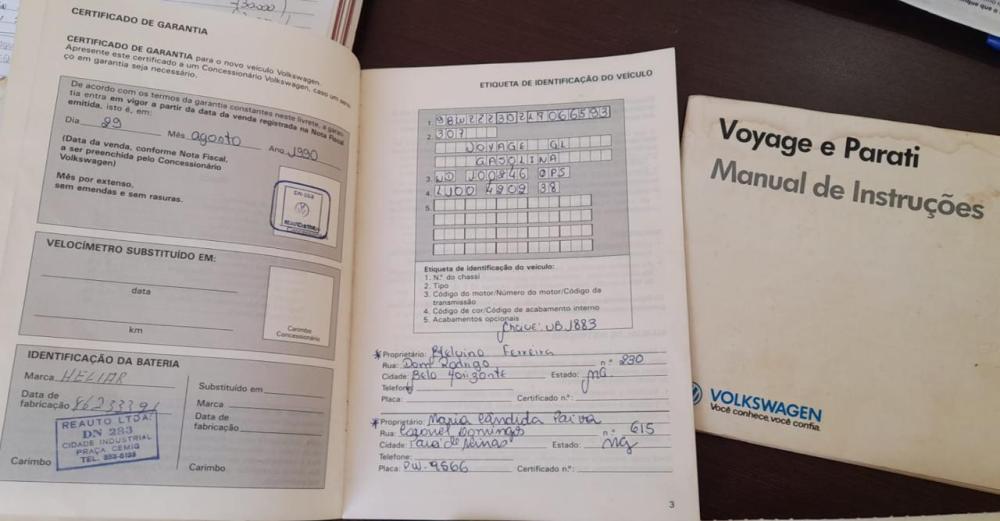 CERTIFICADO DE GARANTIA
CERTIFICADO DE GARANTIA para o novo veículo Volkswagen.
Apresente este certificado a um Concessionário Volkswagen, caso um servi-
ço em garantia seja necessário.
De acordo com os termos da garantia constantes neste livrete, a garan-
tia entra em vigor a partir da data da venda registrada na Nota Fiscal
emitida, isto é, em:
Dia 29 Mês agosto Ano 1990
(Data da venda, conforme Nota Fiscal,
a ser preenchida pelo Concessionário
Volkswagen)
Mês por extenso,
sem emendas e sem rasuras.
VELOCÍMETRO SUBSTITUÍDO EM:
data
km
Carimbo
Concessionário
IDENTIFICAÇÃO DA BATERIA
Marca HELIAR
Data de
fabricação
REAUTO LTDA.
DN 283
CIDADE INDUSTRIAL
PRAÇA CEMIG
Carimbo
Substituído em
Marca
Data de
fabricação
Carimbo
ETIQUETA DE IDENTIFICAÇÃO DO VEÍCULO
1.
2. 307
VOYAGE GL
GASOLINA
3.
4.
5.
Etiqueta de identificação do veículo:
1. N.º do chassi
2. Tipo
3. Código do motor/Número do motor/Código da
transmissão
4. Código de cor/Código de acabamento interno
5. Acabamentos opcionais
chave: UB.1883
*Proprietário: Ferreira
Rua: Dom Rodrigo n.º 230
Cidade: Belo Horizonte Estado: mg.
Telefone:
Placa: Certificado n.º:
*Proprietário: Maria Cândida Paiva
Rua: Coronel Domingos n.º 615
Cidade: Pará de Minas Estado: mg
Telefone:
Placa: PW-9566 Certificado n.º:
3
Voyage e Parati
Manual de Instruções
VOLKSWAGEN
Você conhece, você confia.